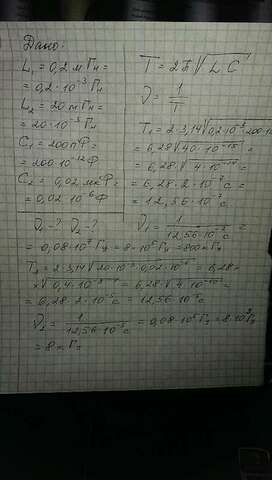 Дано:
L₁ = 0,2 мГн =
= 0,2·10⁻³ Гн
L₂ = 20 мГн =
= 20·10⁻³ Гн
C₁ = 200 пФ =
= 200·10⁻¹² Ф
C₂ = 0,02 мкФ =
= 0,02·10⁻⁶ Ф
ν₁ - ? ν₂ - ?
T = 2π√LC
ν = 1/T
T₁ = 2·3,14√0,2·10⁻³·200·10
= 6,28√40·10⁻¹⁵ =
= 6,28·√4·10⁻¹⁴ =
= 6,28·2·10⁻⁷ с =
= 12,56·10⁻⁷ с
ν₁ = 1/12,56·10⁻⁷ с =
= 0,08·10⁷ Гц = 8·10⁵ Гц = 800 кГц
T₂ = 2·3,14√20·10⁻³·0,02·10⁻⁶ = 6,28×
×√0,4·10⁻⁹ = 6,28√4·10⁻¹⁰ =
= 6,28·2·10⁻⁵ с = 12,56·10⁻⁵ с
ν₂ = 1/12,56·10⁻⁵ с = 0,08·10⁵ Гц = 8·10³ Гц =
= 8 кГц